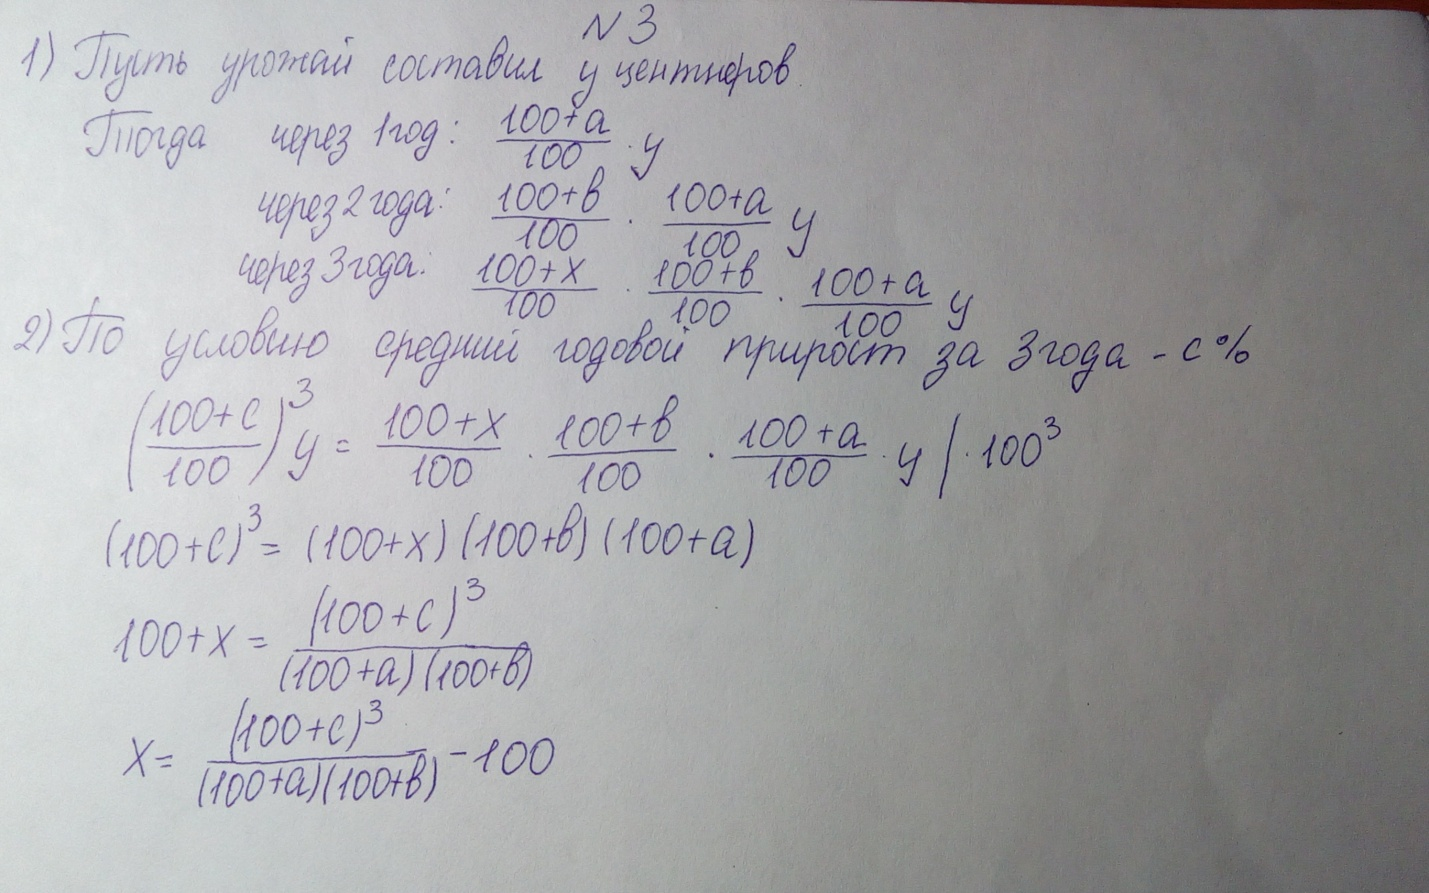 N 3
1) Пусть урожай составил y центнеров.
Тогда через 1 год: (100+a)/100 · y
через 2 года: (100+b)/100 · (100+a)/100 y
через 3 года: (100+x)/100 · (100+b)/100 · (100+a)/100 y
2) По условию средний годовой прирост за 3 года - c%
((100+c)/100)³ y = (100+x)/100 · (100+b)/100 · (100+a)/100 · y | · 100³
(100+c)³ = (100+x) (100+b) (100+a)
100+x = (100+c)³/((100+a)(100+b))
x = (100+c)³/((100+a)(100+b)) - 100